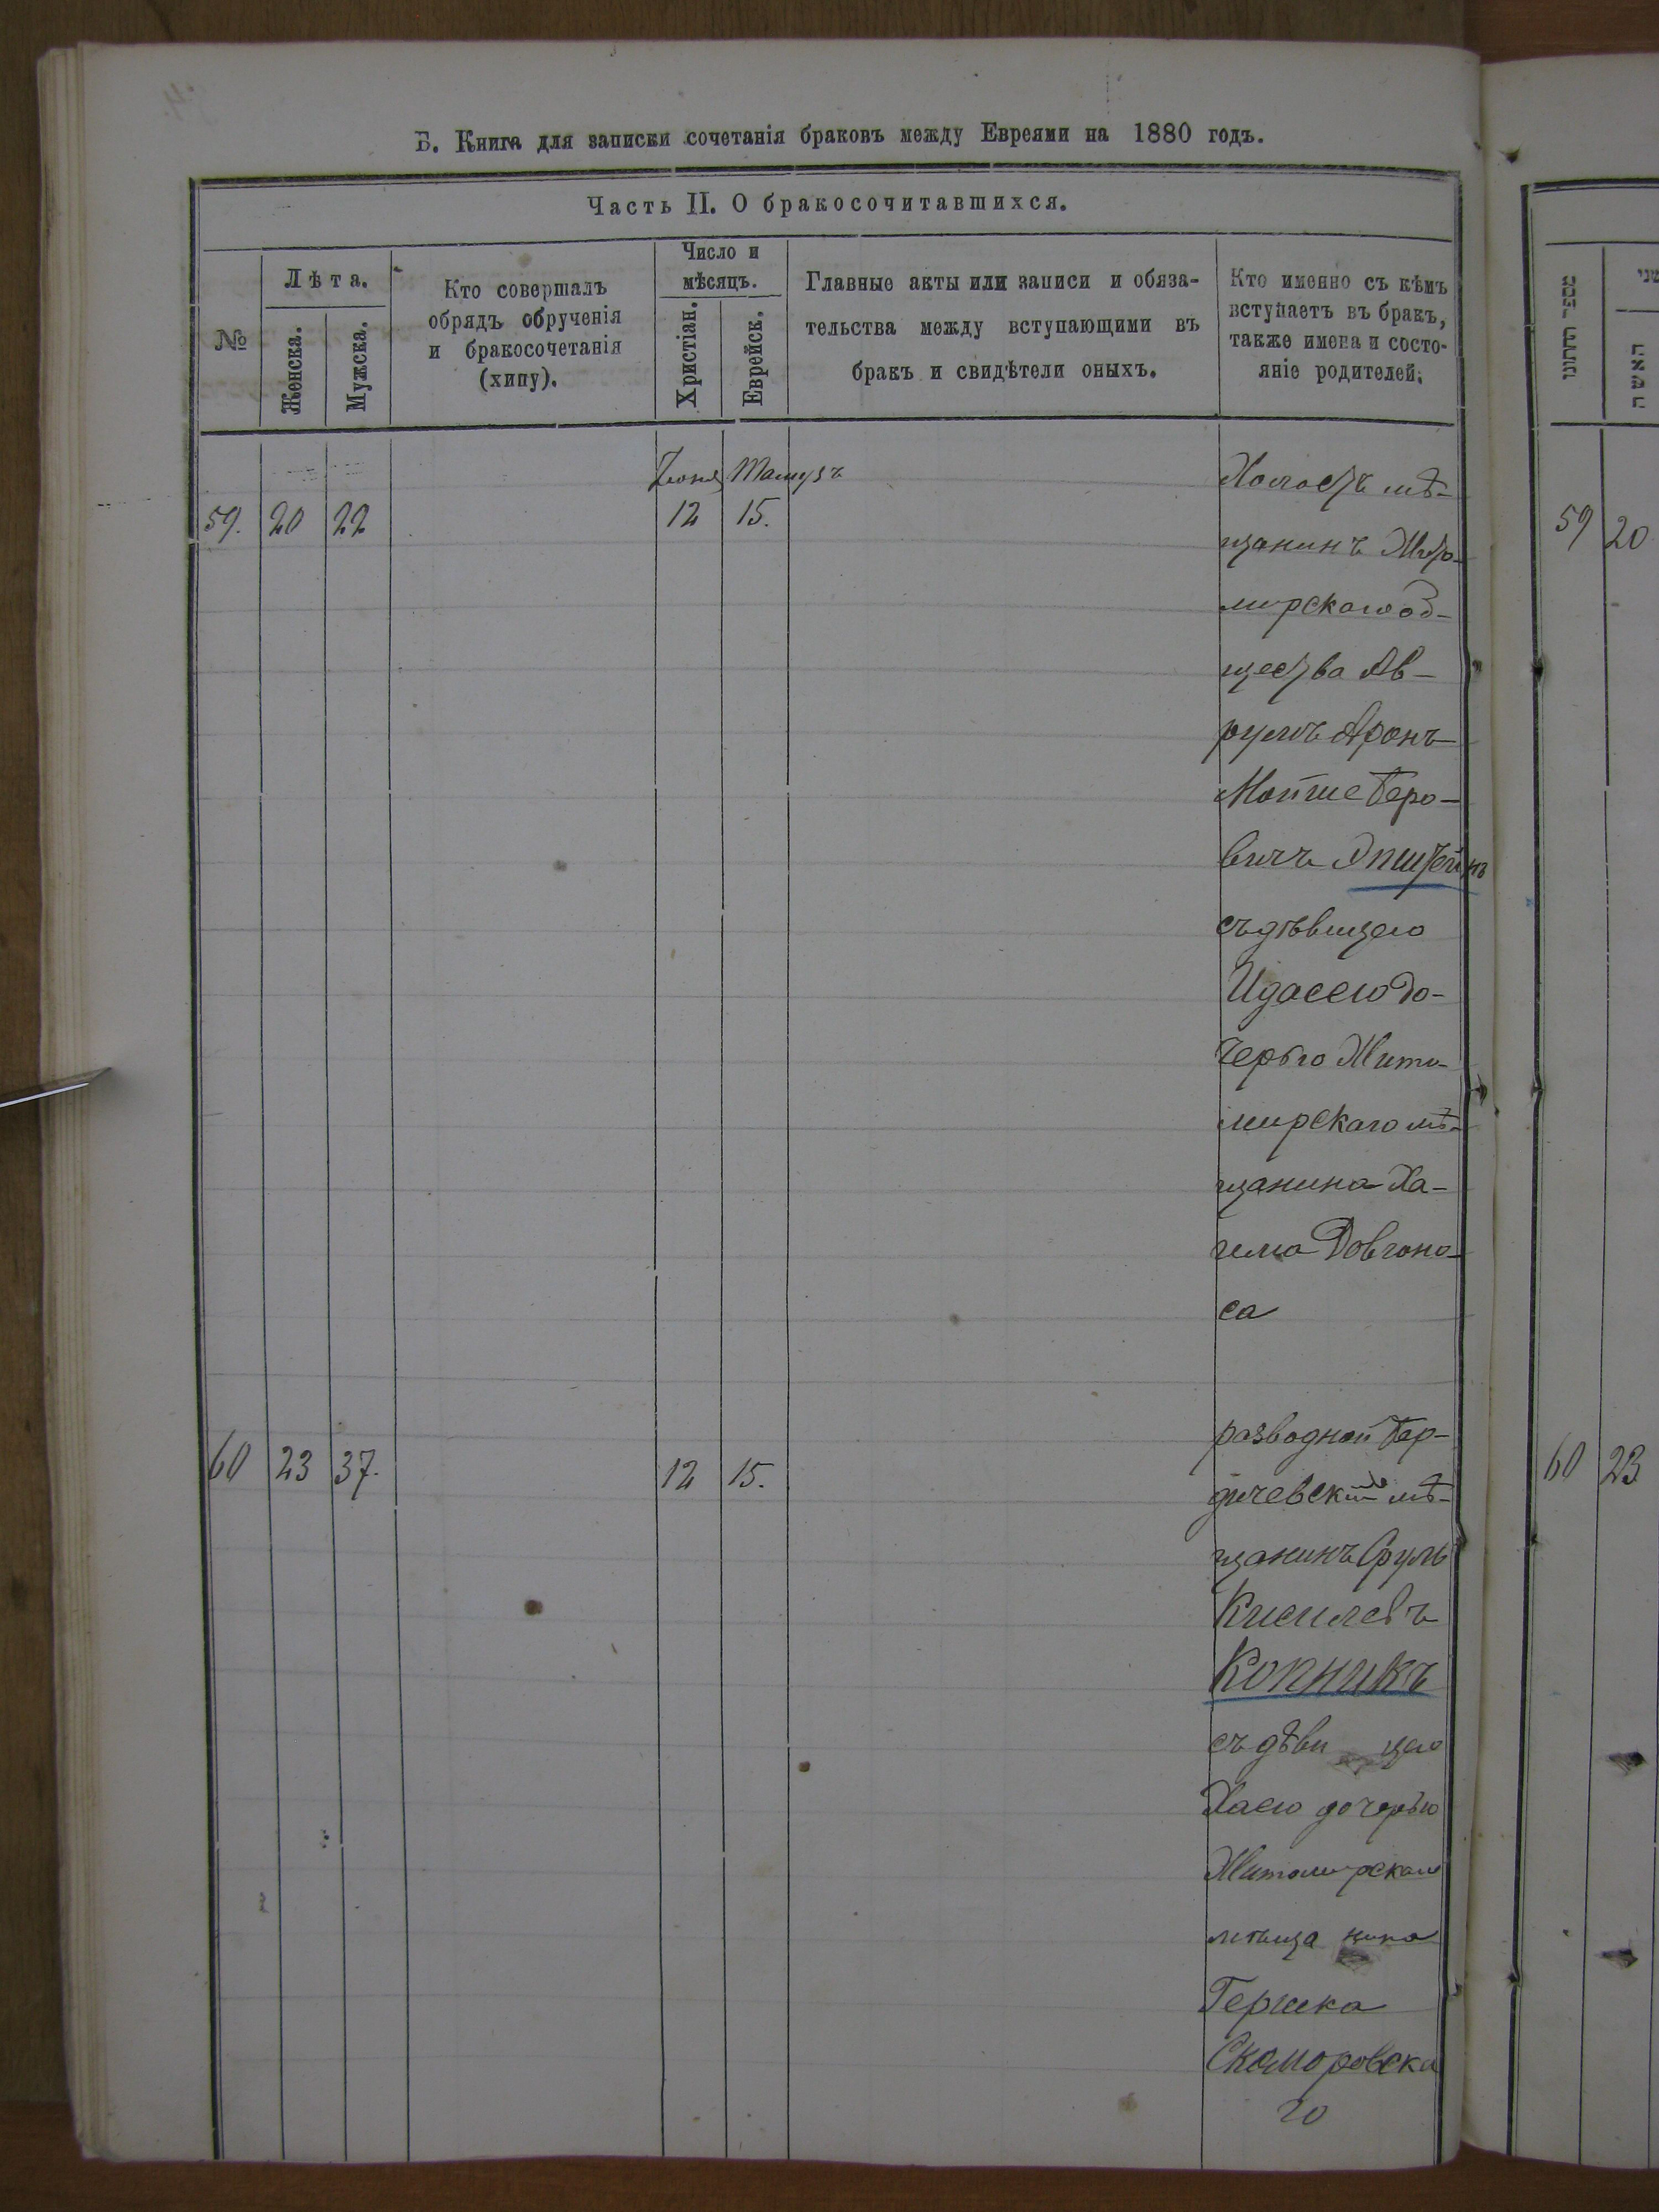 Б. Книга для записки сочетанія браковъ между Евреями на 1880 годъ.
Часть II. О бракосочитавшихся.
№
Лѣта.
Женска.
Мужска.
Кто совершалъ
обрядъ обрученія
и бракосочетанія
(хипу).
Число и
мѣсяцъ.
Христіан.
Еврейск.
Главные акты или записи и обяза-
тельства между вступающими въ
бракъ и свидѣтели оныхъ.
Кто именно съ кѣмъ
вступаетъ въ бракъ,
также имена и состо-
яніе родителей.
Іюня Тамузъ
59. 20 22 12 15.
Холостъ мѣ-
щанинъ Жито-
мирскаго об-
щества Ав-
румъ Аронъ
Мойше Беро-
вичъ Эпштейнъ
съ дѣвицею
Идасею до-
черью Жито-
мирскаго мѣ-
щанина Ха-
има Довгоно-
са
60 23 37. 12 15.
разводной Бер-
дичевскій мѣ-
щанинъ Сруль
Кисилевъ
Копникъ
съ дѣви цею
Хаею дочерью
Житомирскаго
мѣща нина
Гершка
Скоморовска
го
מספר החתונו
האשה
59 20
60 23